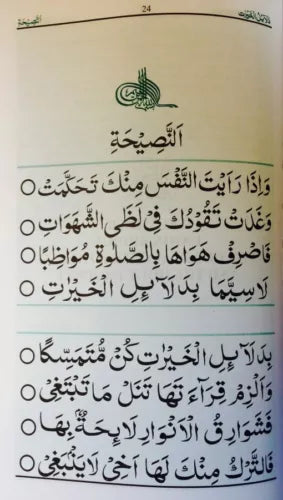 24
دلائل الخيرات
النصيحة
اَلنَّصِيْحَةِ
وَاِذَا رَاَيْتَ النَّفْسَ مِنْكَ تَحَكَّمَتْ
وَغَدَتْ تَقُوْدُكَ فِيْ لَظَى الشَّهَوَاتِ
فَاصْرِفْ هَوَاهَا بِالصَّلٰوةِ مُوَاظِبًا
لَاسِيَّمَا بِدَلَآئِلِ الْخَيْرٰتِ
بِدَلَآئِلِ الْخَيْرٰتِ كُنْ مُّتَمَسِّكًا
وَالْزِمْ قِرَآءَتَهَا تَنَلْ مَا تَبْتَغِيْ
فَشَوَارِقُ الْاَنْوَارِ لَآئِحَةٌۢ بِهَا
فَالتَّرْكُ مِنْكَ لَهَا اَخِيْ لَايَنْۢبَغِيْ